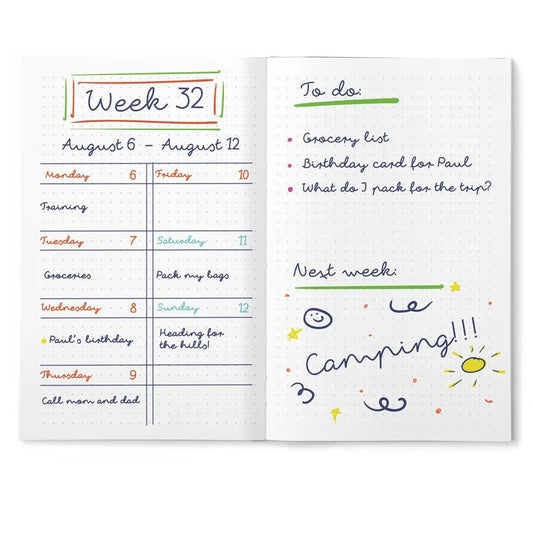 Week 32
August 6 – August 12
Monday 6
Training
Tuesday 7
Groceries
Wednesday 8
Paul's birthday
Thursday 9
Call mom and dad
Friday 10
Saturday 11
Pack my bags
Sunday 12
Heading for
the hills!
To do:
Grocery list
Birthday card for Paul
What do I pack for the trip?
Next week:
Camping!!!